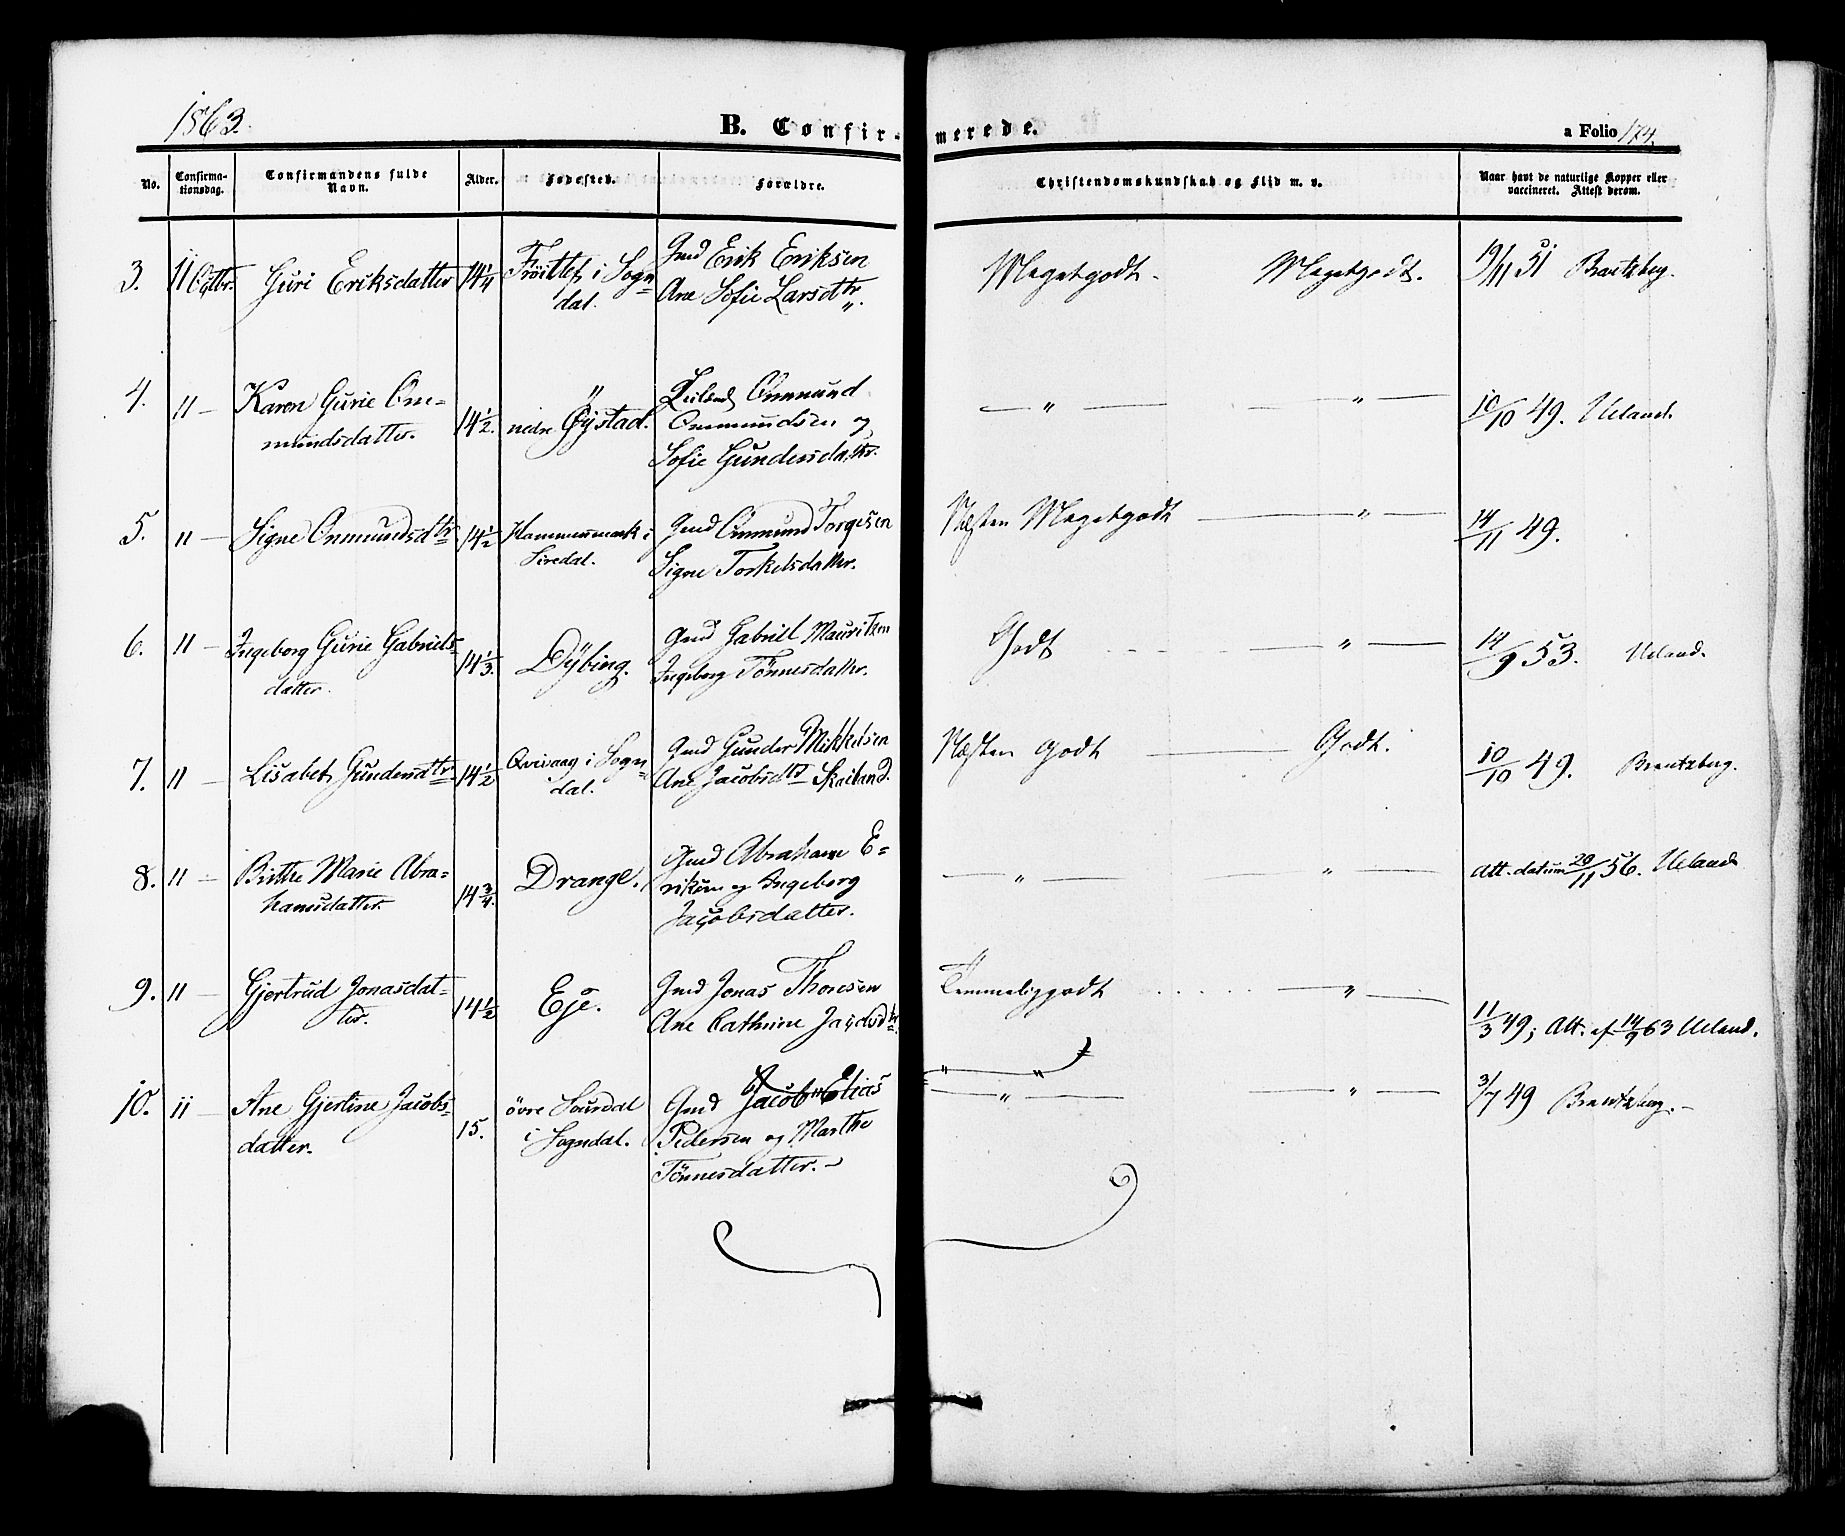 1863.
B. Confir-
merede.
a Folio 174.
No.
Confirma-
tionsdag.
Confirmandens fulde
Navn.
Alder.
Fødested.
Forældre.
Christendomskundskab og Flid m. v.
Naar havt de naturlige Kopper eller
vaccineret. Attest derom.
3. 11 Octbr. Guri Eriksdatter 14 1/4 i Sogn=
dal.
Gmd Erik Eriksen
Ane Sofie Larsdtr.
Megetgodt. Megetgodt. 19/11 51 Brantzberg.
4. 11 — Karen Gurie Om-
mundsdatter. 14 1/2. nedre Øystad.
Ommund
Ommundsen og
Sofie Gundersdattr.
— " — — " — 10/10 49. Ueland.
5. 11 — Signe Ommundsdtr 14 1/2 i
Siredal.
Gmd Ommund Torgesen
Signe Torkelsdattr.
Næsten Megetgodt — " — 14/11 49.
6. 11 — Ingeborg Gurie Gabriels-
datter. 14 1/3. Dybing.
Gmd Gabriel Mauritzen
Ingeborg Tönnesdattr.
Godt — " — 14/9 53. Ueland.
7. 11 — Lisabet Gundersdtr. 14 1/2 i Sogn=
dal.
Gmd Gunder Mikkelsen
Ane Jacobsdtr Skailand.
Næsten Godt — Godt. 10/10 49. Brantzberg.
8. 11 — Brithe Marie Abra=
hamsdatter. 14 3/4. Drange.
Gmd Abraham E=
riksen og Ingeborg
Jacobsdatter.
— " — — " — Att. datum 29/11 56. Ueland
9. 11 — Gjertrud Jonasdat-
ter. 14 1/2 Eje.
Gmd Jonas Thoresen
Ane Cathrine Jacobsdtr.
Temmeliggodt — " —
11/3 49; Att. af 14/9 63 Ueland.
10. 11 — Ane Gjertine Jacobs=
datter. 15. övre
i Sogndal.
Gmd Jacob Elias
Pedersen og Marthe
Tönnesdatter. —
— " — — " — 3/7 49 Brantzberg. —